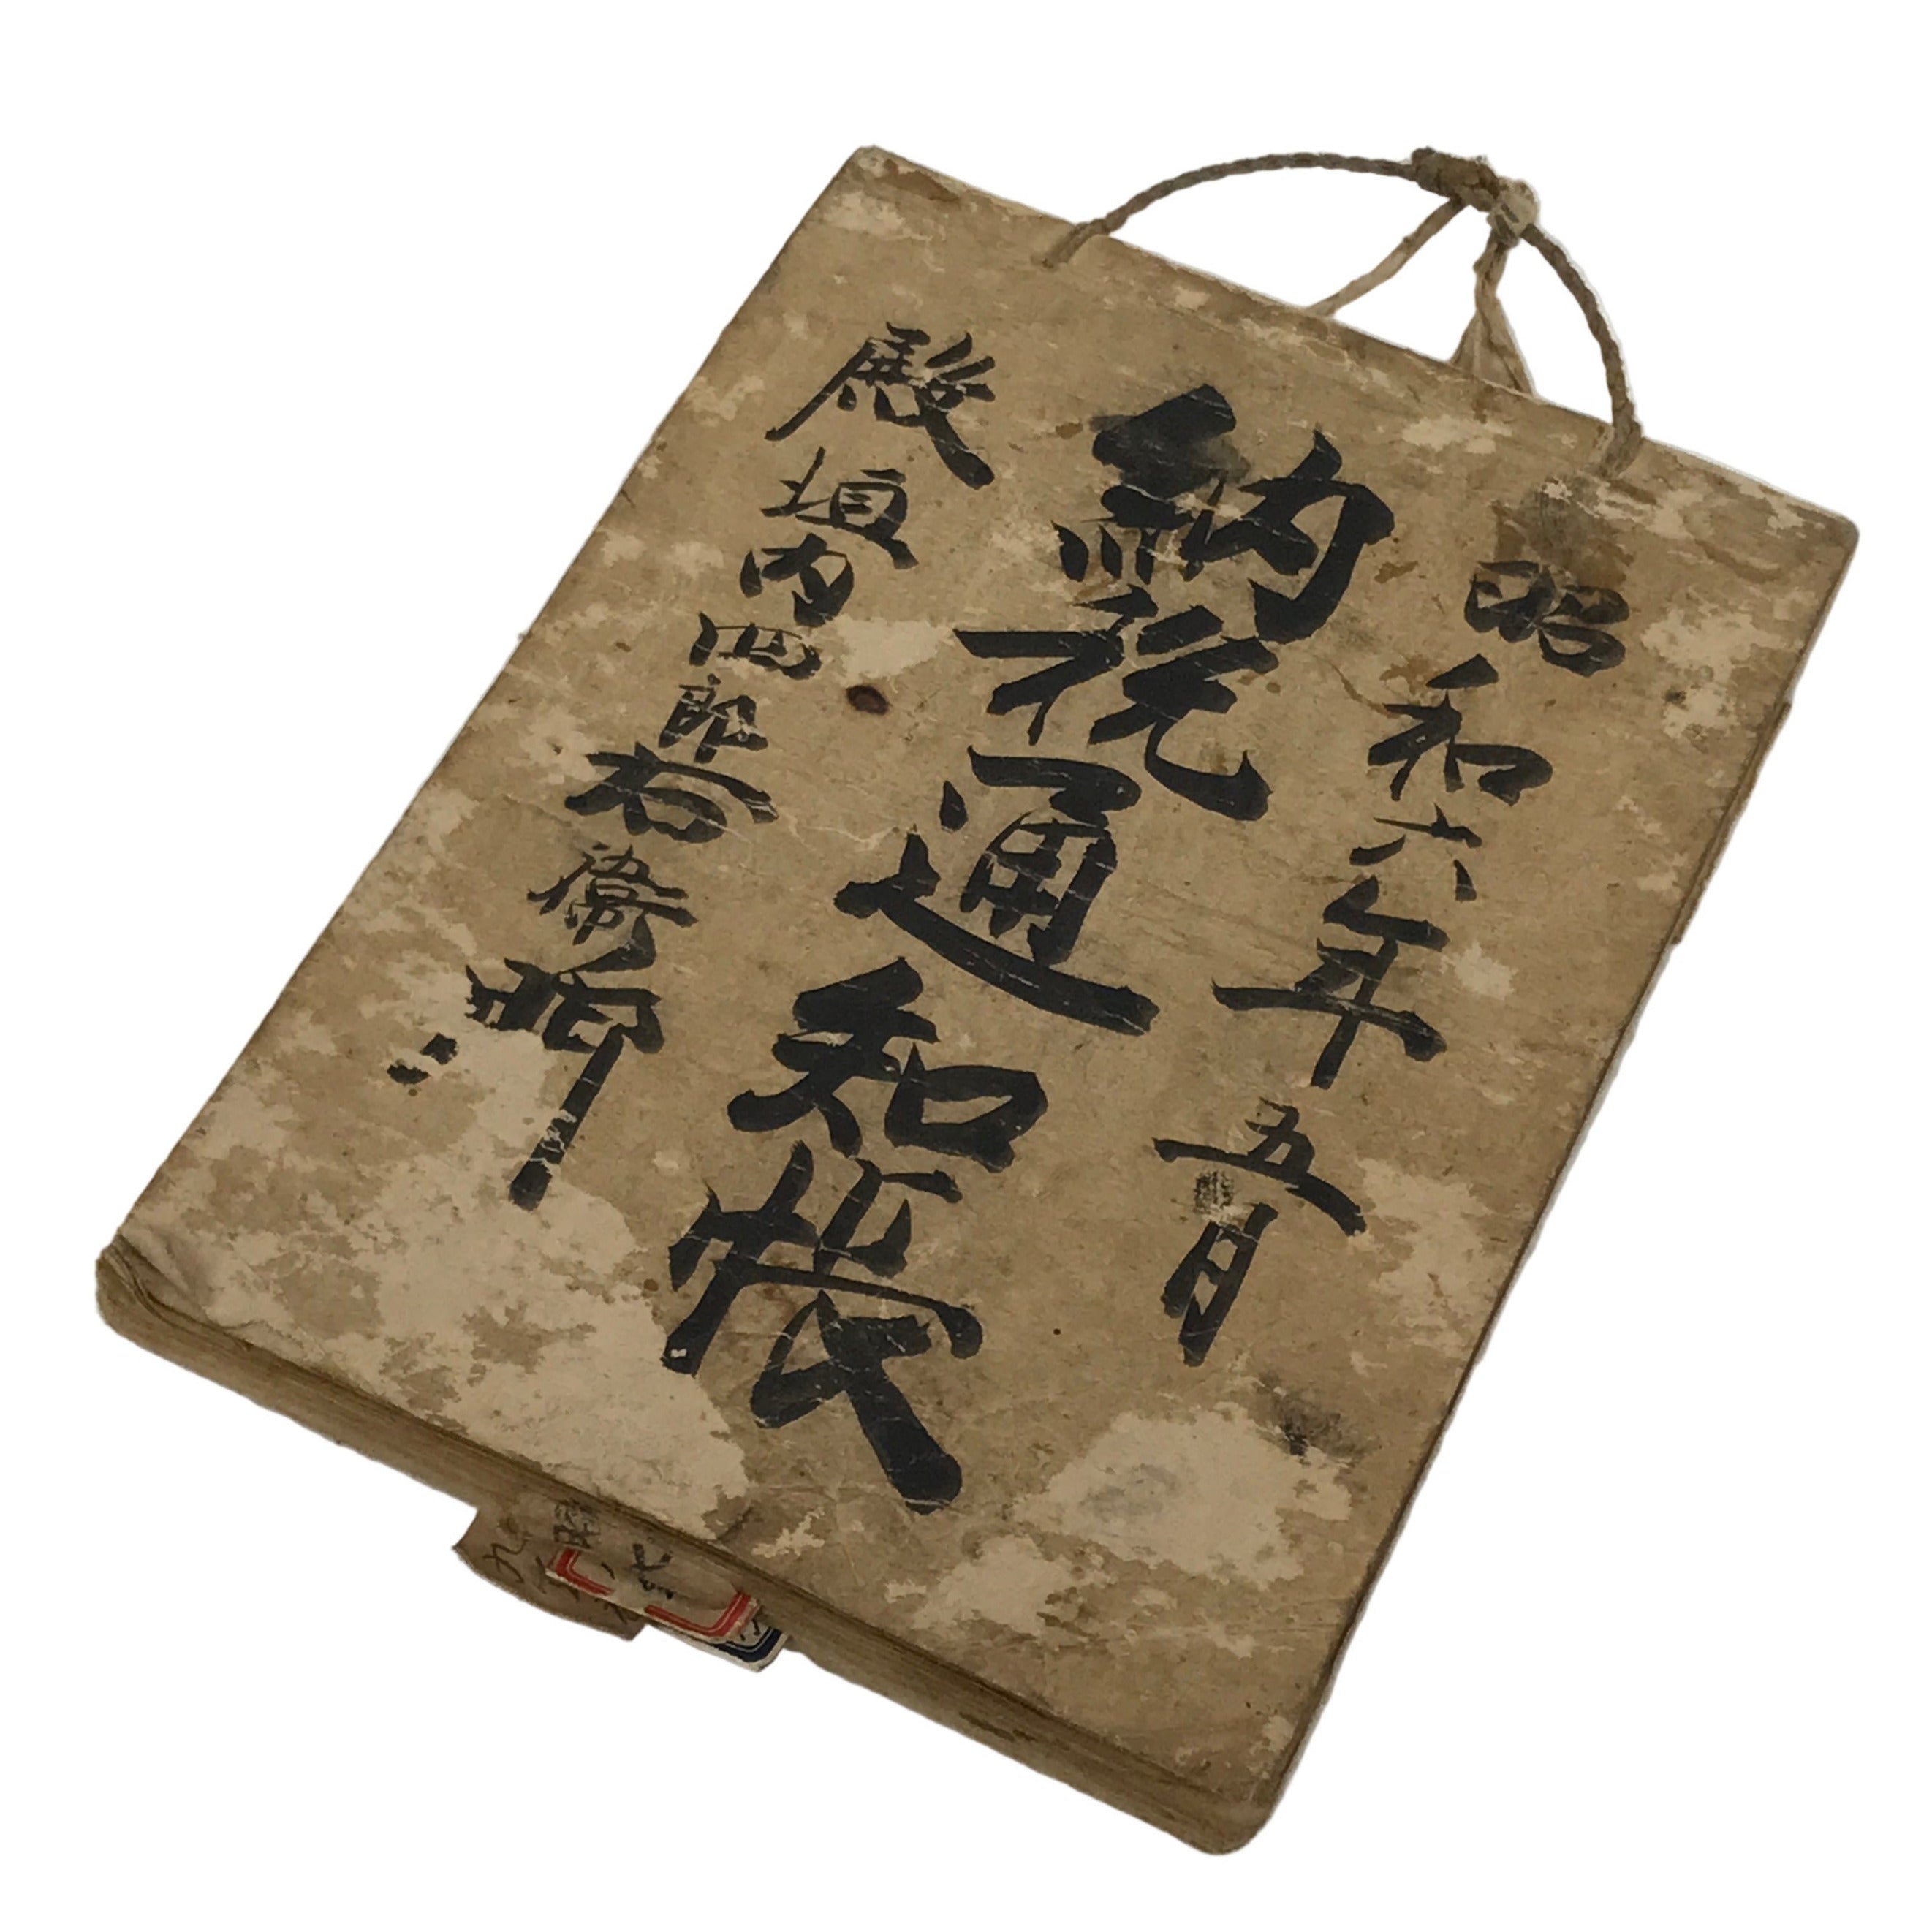 昭和六年五月
納税通知帳
殿垣内四郎右衛